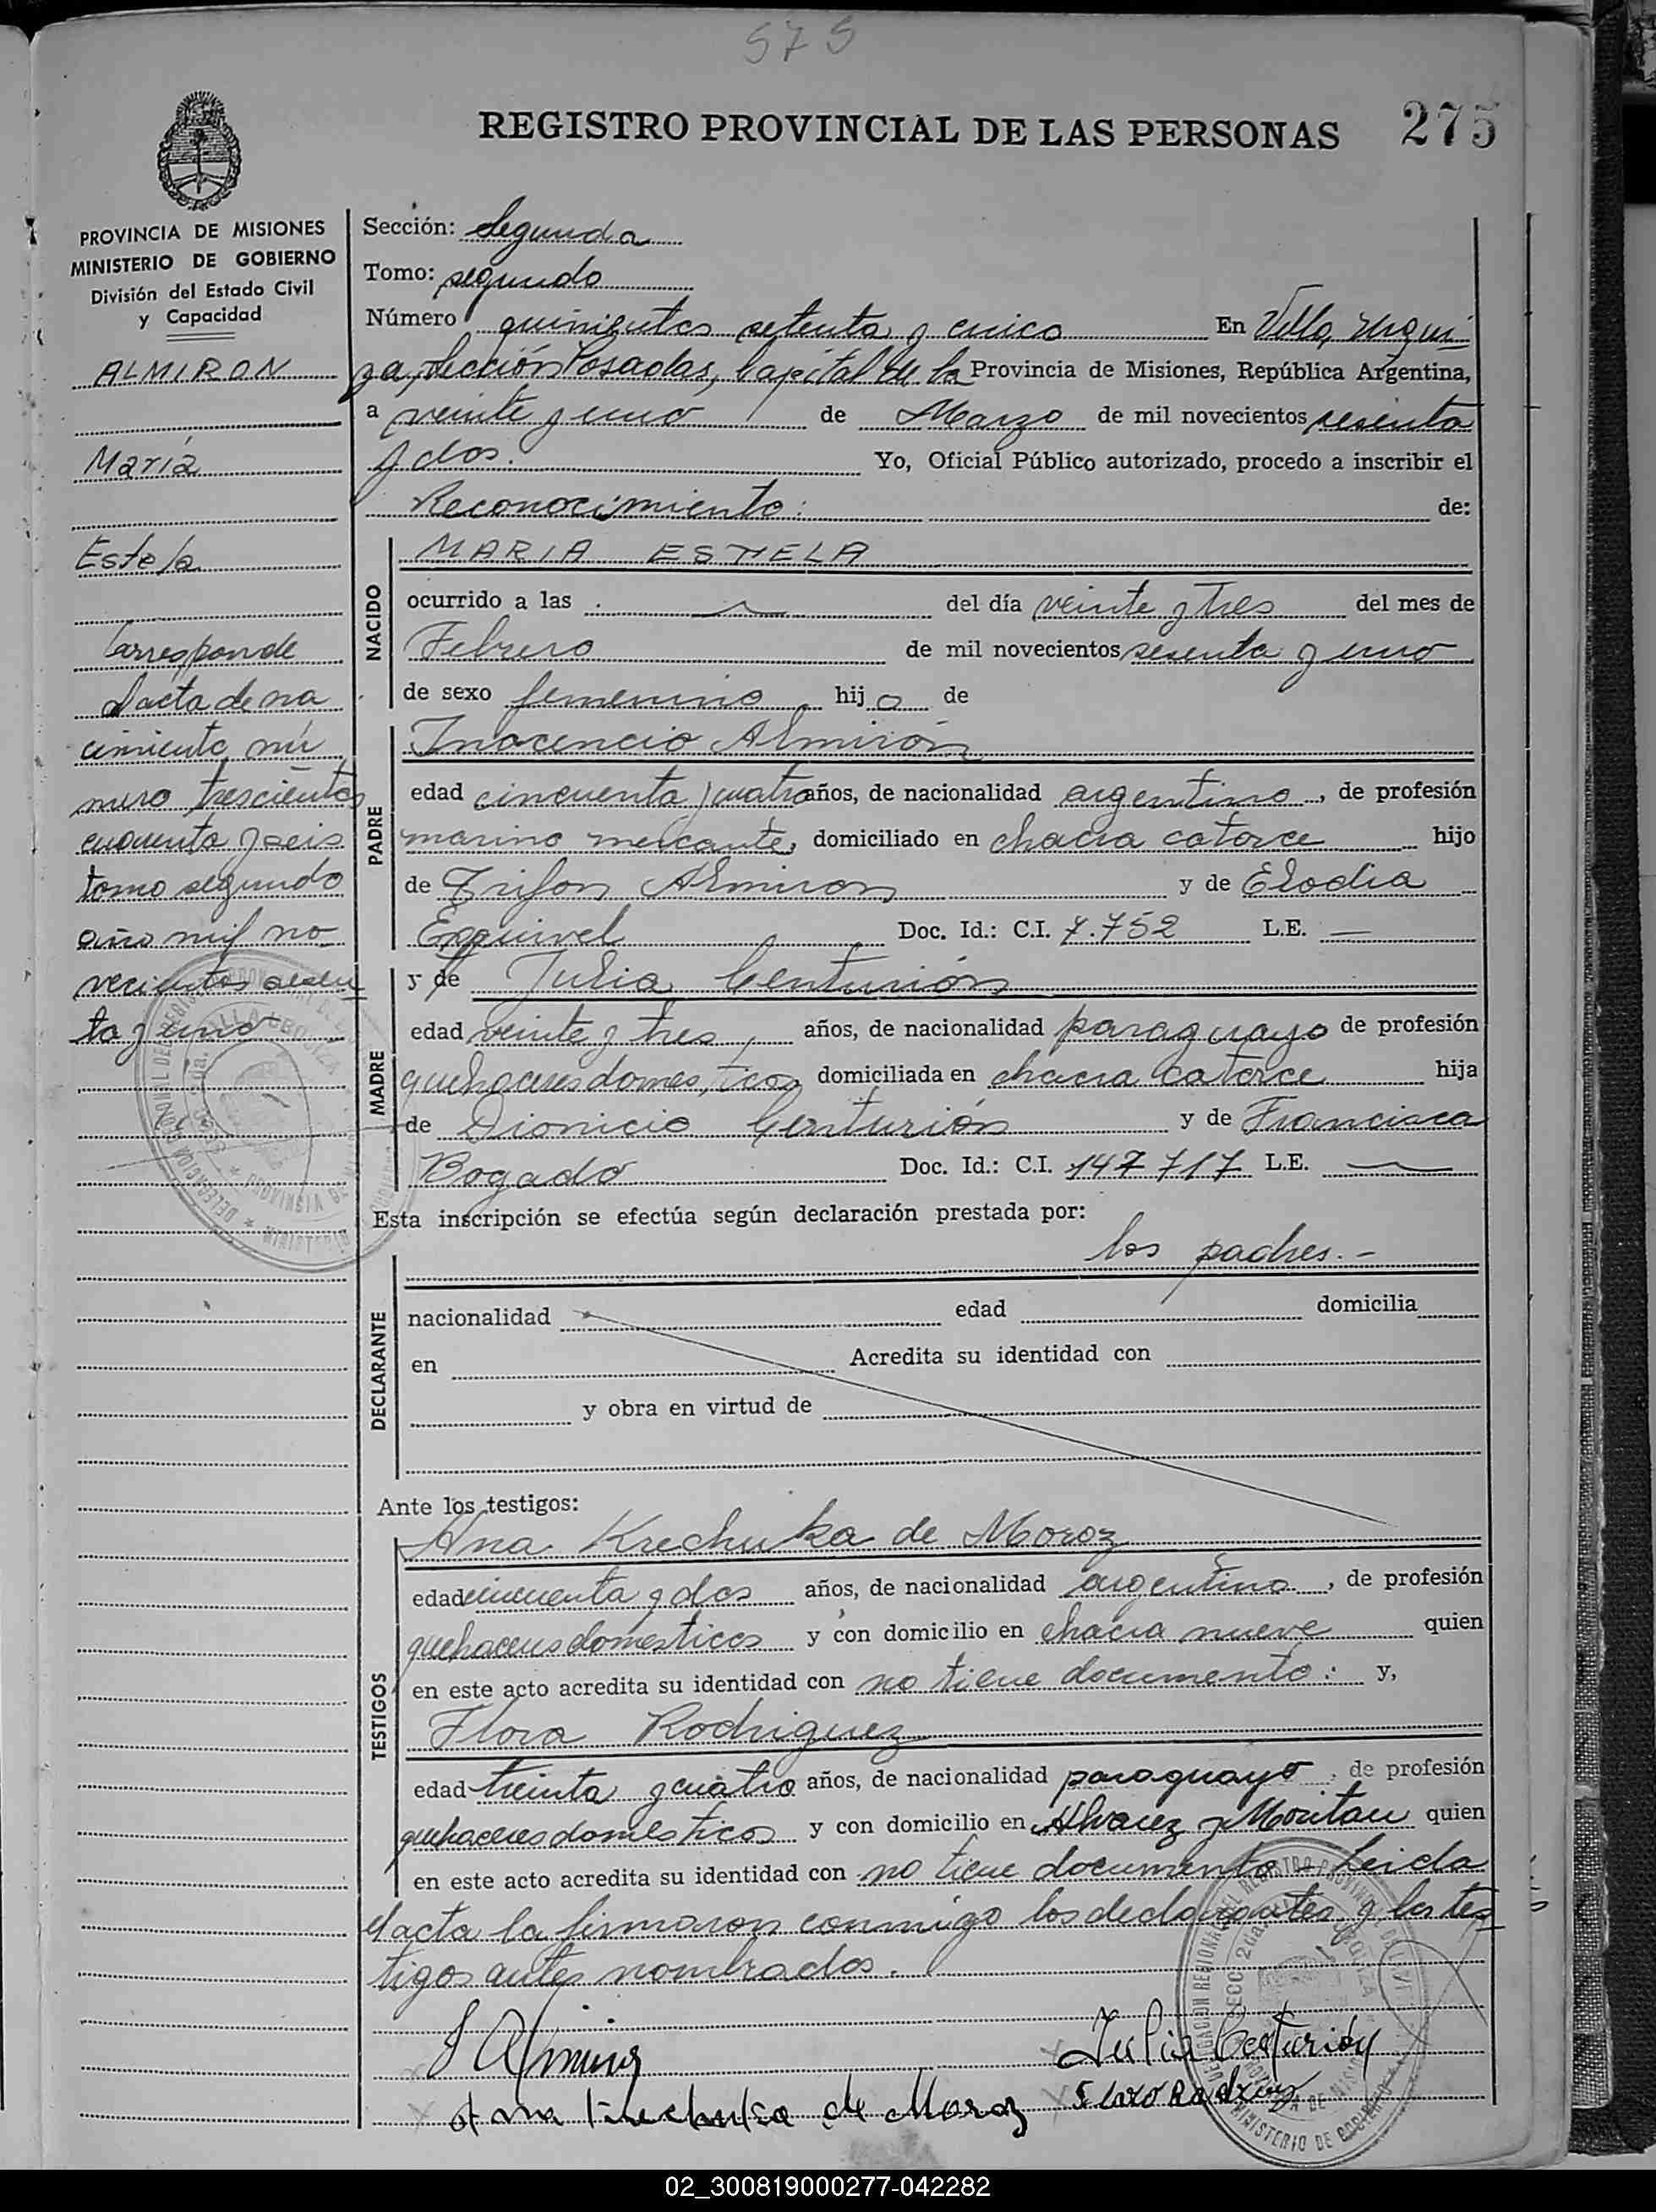 575
REGISTRO PROVINCIAL DE LAS PERSONAS 275
PROVINCIA DE MISIONES
MINISTERIO DE GOBIERNO
División del Estado Civil
y Capacidad
ALMIRON
María
Estela
Corresponde
al acta de na
cimiento nú
mero trescientos
cuarenta y seis
tomo segundo
año mil no
vecientos sesen
ta y uno
Sección: Segunda
Tomo: segundo
Número quinientos setenta y cinco En Villa Urqui
za, Sección Posadas, Capital de la Provincia de Misiones, República Argentina,
a veinte y uno de Marzo de mil novecientos sesenta
y dos. Yo, Oficial Público autorizado, procedo a inscribir el
Reconocimiento: de:
NACIDO
MARIA ESTELA
ocurrido a las del día veinte y tres del mes de
Febrero de mil novecientos sesenta y uno
de sexo femenino hij a de
PADRE
Inocencio Almirón
edad cincuenta y cuatro años, de nacionalidad argentino, de profesión
marino mercante, domiciliado en chacra catorce hijo
de Trifon Almiron y de Elodia
Esquivel Doc. Id.: C.I. 7.752 L.E. —
MADRE
y de Julia Centurión
edad veinte y tres, años, de nacionalidad paraguayo de profesión
quehaceres domesticos domiciliada en chacra catorce hija
de Dionicio Centurión y de Francisca
Bogado Doc. Id.: C.I. 147717 L.E. —
Esta inscripción se efectúa según declaración prestada por:
los padres.-
DECLARANTE
nacionalidad edad domicilia
en Acredita su identidad con
y obra en virtud de
Ante los testigos:
TESTIGOS
Ana Krechuka de Moroz
edad cincuenta y dos años, de nacionalidad argentino, de profesión
quehaceres domesticos y con domicilio en chacra nueve quien
en este acto acredita su identidad con no tiene documento: y,
Flora Rodriguez
edad treinta y cuatro años, de nacionalidad paraguayo, de profesión
quehaceres domesticos y con domicilio en Alvarez y Moritan quien
en este acto acredita su identidad con no tiene documento - Leida
el acta la firmaron conmigo los declarantes y los tes
tigos antes nombrados.
Julia Centurión
Ana Krechuka de Moroz
02_300819000277-042282